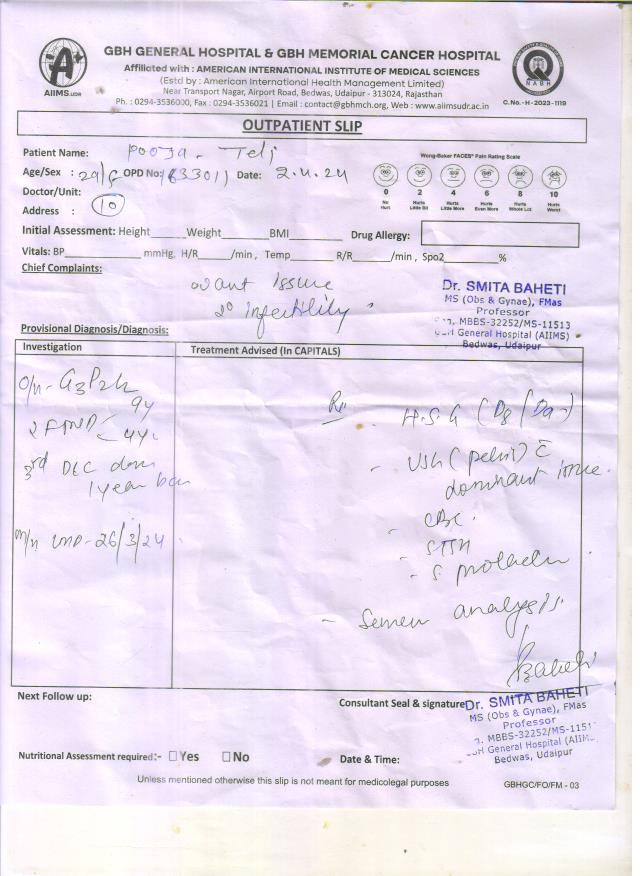 GBH GENERAL HOSPITAL & GBH MEMORIAL CANCER HOSPITAL
Affiliated with : AMERICAN INTERNATIONAL INSTITUTE OF MEDICAL SCIENCES
(Estd by : American International Health Management Limited)
Near Transport Nagar, Airport Road, Bedwas, Udaipur - 313024, Rajasthan
Ph. : 0294-3536000, Fax : 0294-3536021 | Email : contact@gbhmch.org, Web : www.aiimsudr.ac.in
AIIMS.UDR
NABH
C.No.-H-2023-1119
OUTPATIENT SLIP
Patient Name: Pooja. Teli
Wong-Baker FACES® Pain Rating Scale
Age/Sex : 29/F OPD No: 1633011 Date: 2.4.24
0 2 4 6 8 10
No Hurt Hurts Little Bit Hurts Little More Hurts Even More Hurts Whole Lot Hurts Worst
Doctor/Unit:
Address : 10
Initial Assessment: Height Weight BMI Drug Allergy:
Vitals: BP mmHg, H/R /min , Temp R/R /min , Spo2 %
Chief Complaints:
want issue
2° infertility
Dr. SMITA BAHETI
MS (Obs & Gynae), FMas
Professor
MBBS-32252/MS-11513
General Hospital (AIIMS)
Bedwas, Udaipur
Provisional Diagnosis/Diagnosis:
Investigation Treatment Advised (In CAPITALS)
O/H- G3P2
9y
2 FTND - 4y.
3rd D&C done
1 year back
M/H LMP- 26/3/24
Rx
H.S.G
- USG (pelvis) c̄
dominant
- CBC.
- S TSH
- S prolactin.
- Semen analysis.
Baheti
Next Follow up:
Consultant Seal & signature
Dr. SMITA BAHETI
MS (Obs & Gynae), FMas
Professor
MBBS-32252/MS-1151
General Hospital (AIIM
Bedwas, Udaipur
Nutritional Assessment required:- Yes No Date & Time:
Unless mentioned otherwise this slip is not meant for medicolegal purposes
GBHGC/FO/FM - 03